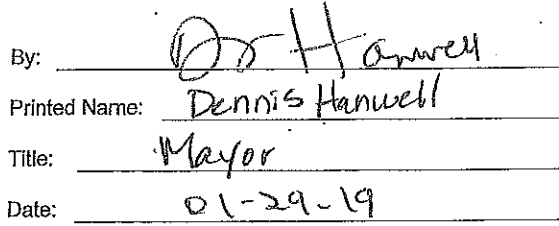 By: Dr Hanwell
Printed Name: Dennis Hanwell
Title: Mayor
Date: 01-29-19